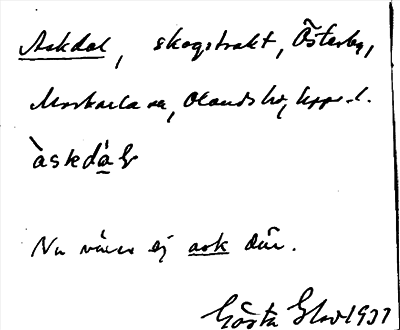 Askdal, skogstrakt, Österby,
Morkarla sn, Olands hd, Upps. l.
àskdá̲l
Nu växer ej ask där.
Gösta Elov 1937